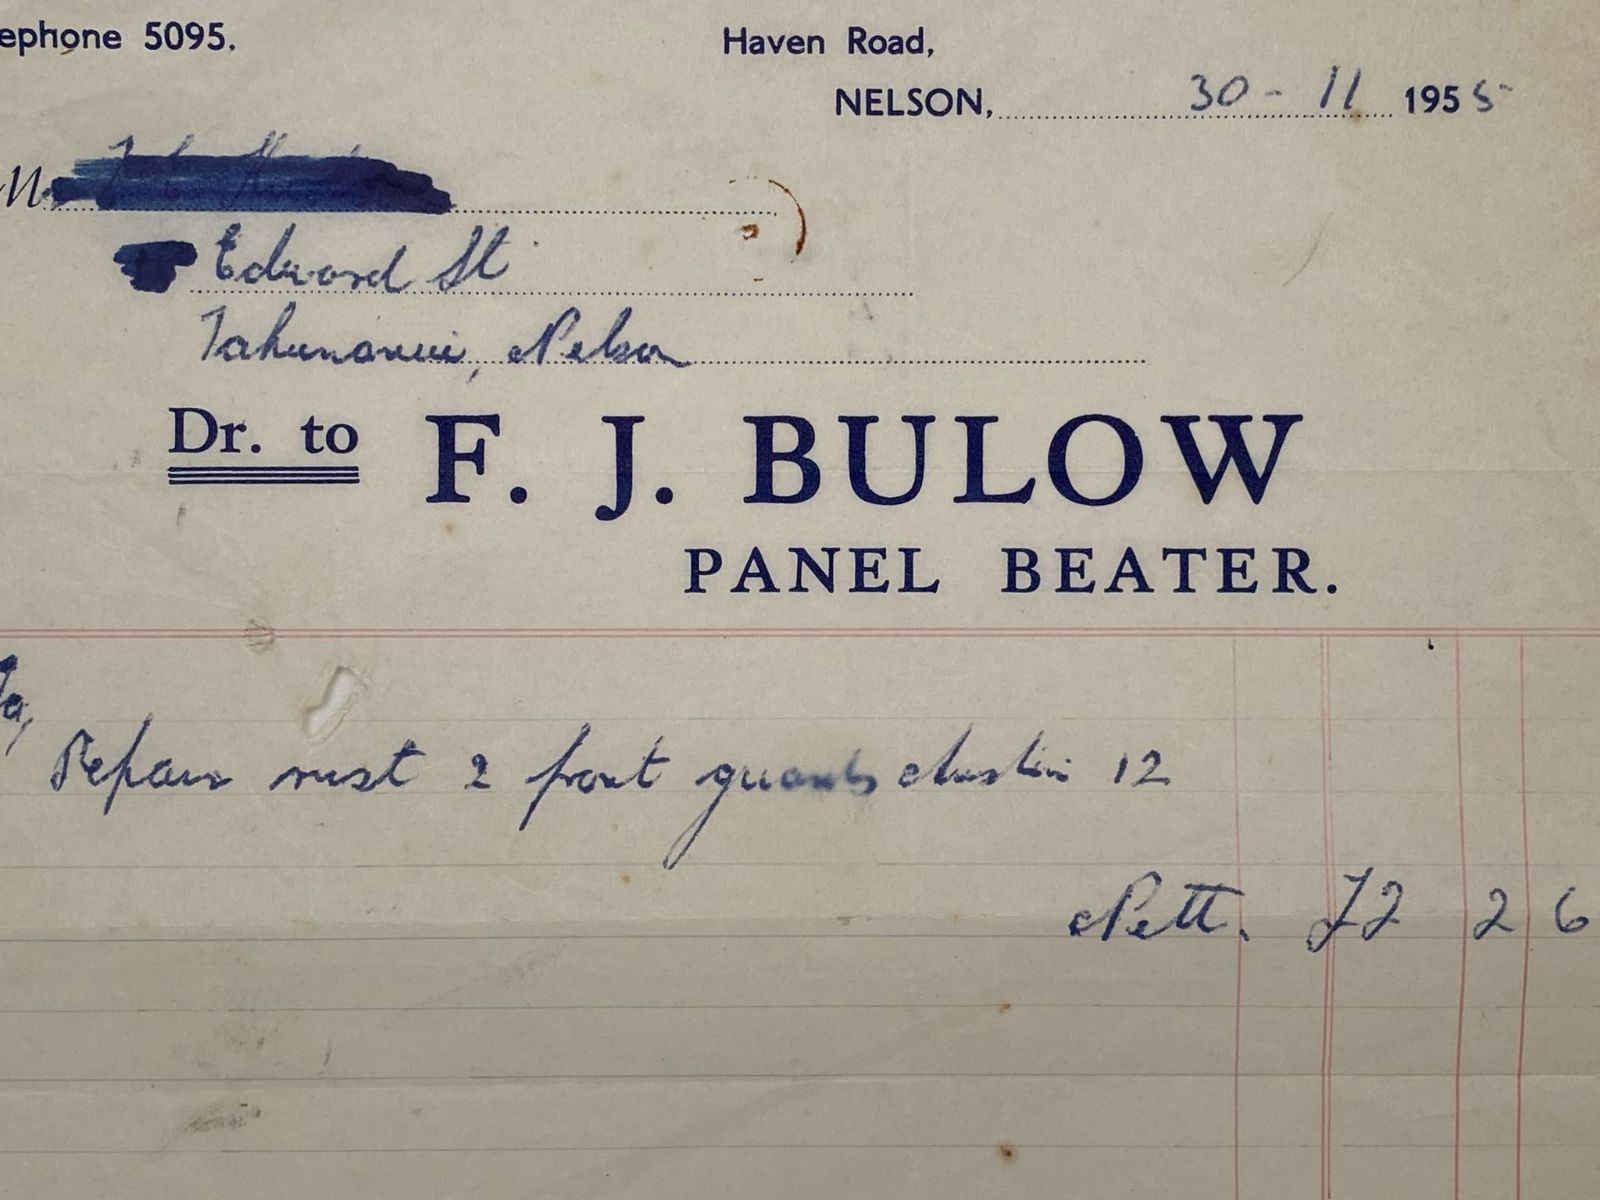 ephone 5095.
Haven Road,
NELSON, 30 - 11 1955
M
Edward St
Tahunanui, Nelson
Dr. to F. J. BULOW
PANEL BEATER.
To,
Repair rust 2 front guards Austin 12
Nett. £2 2 6